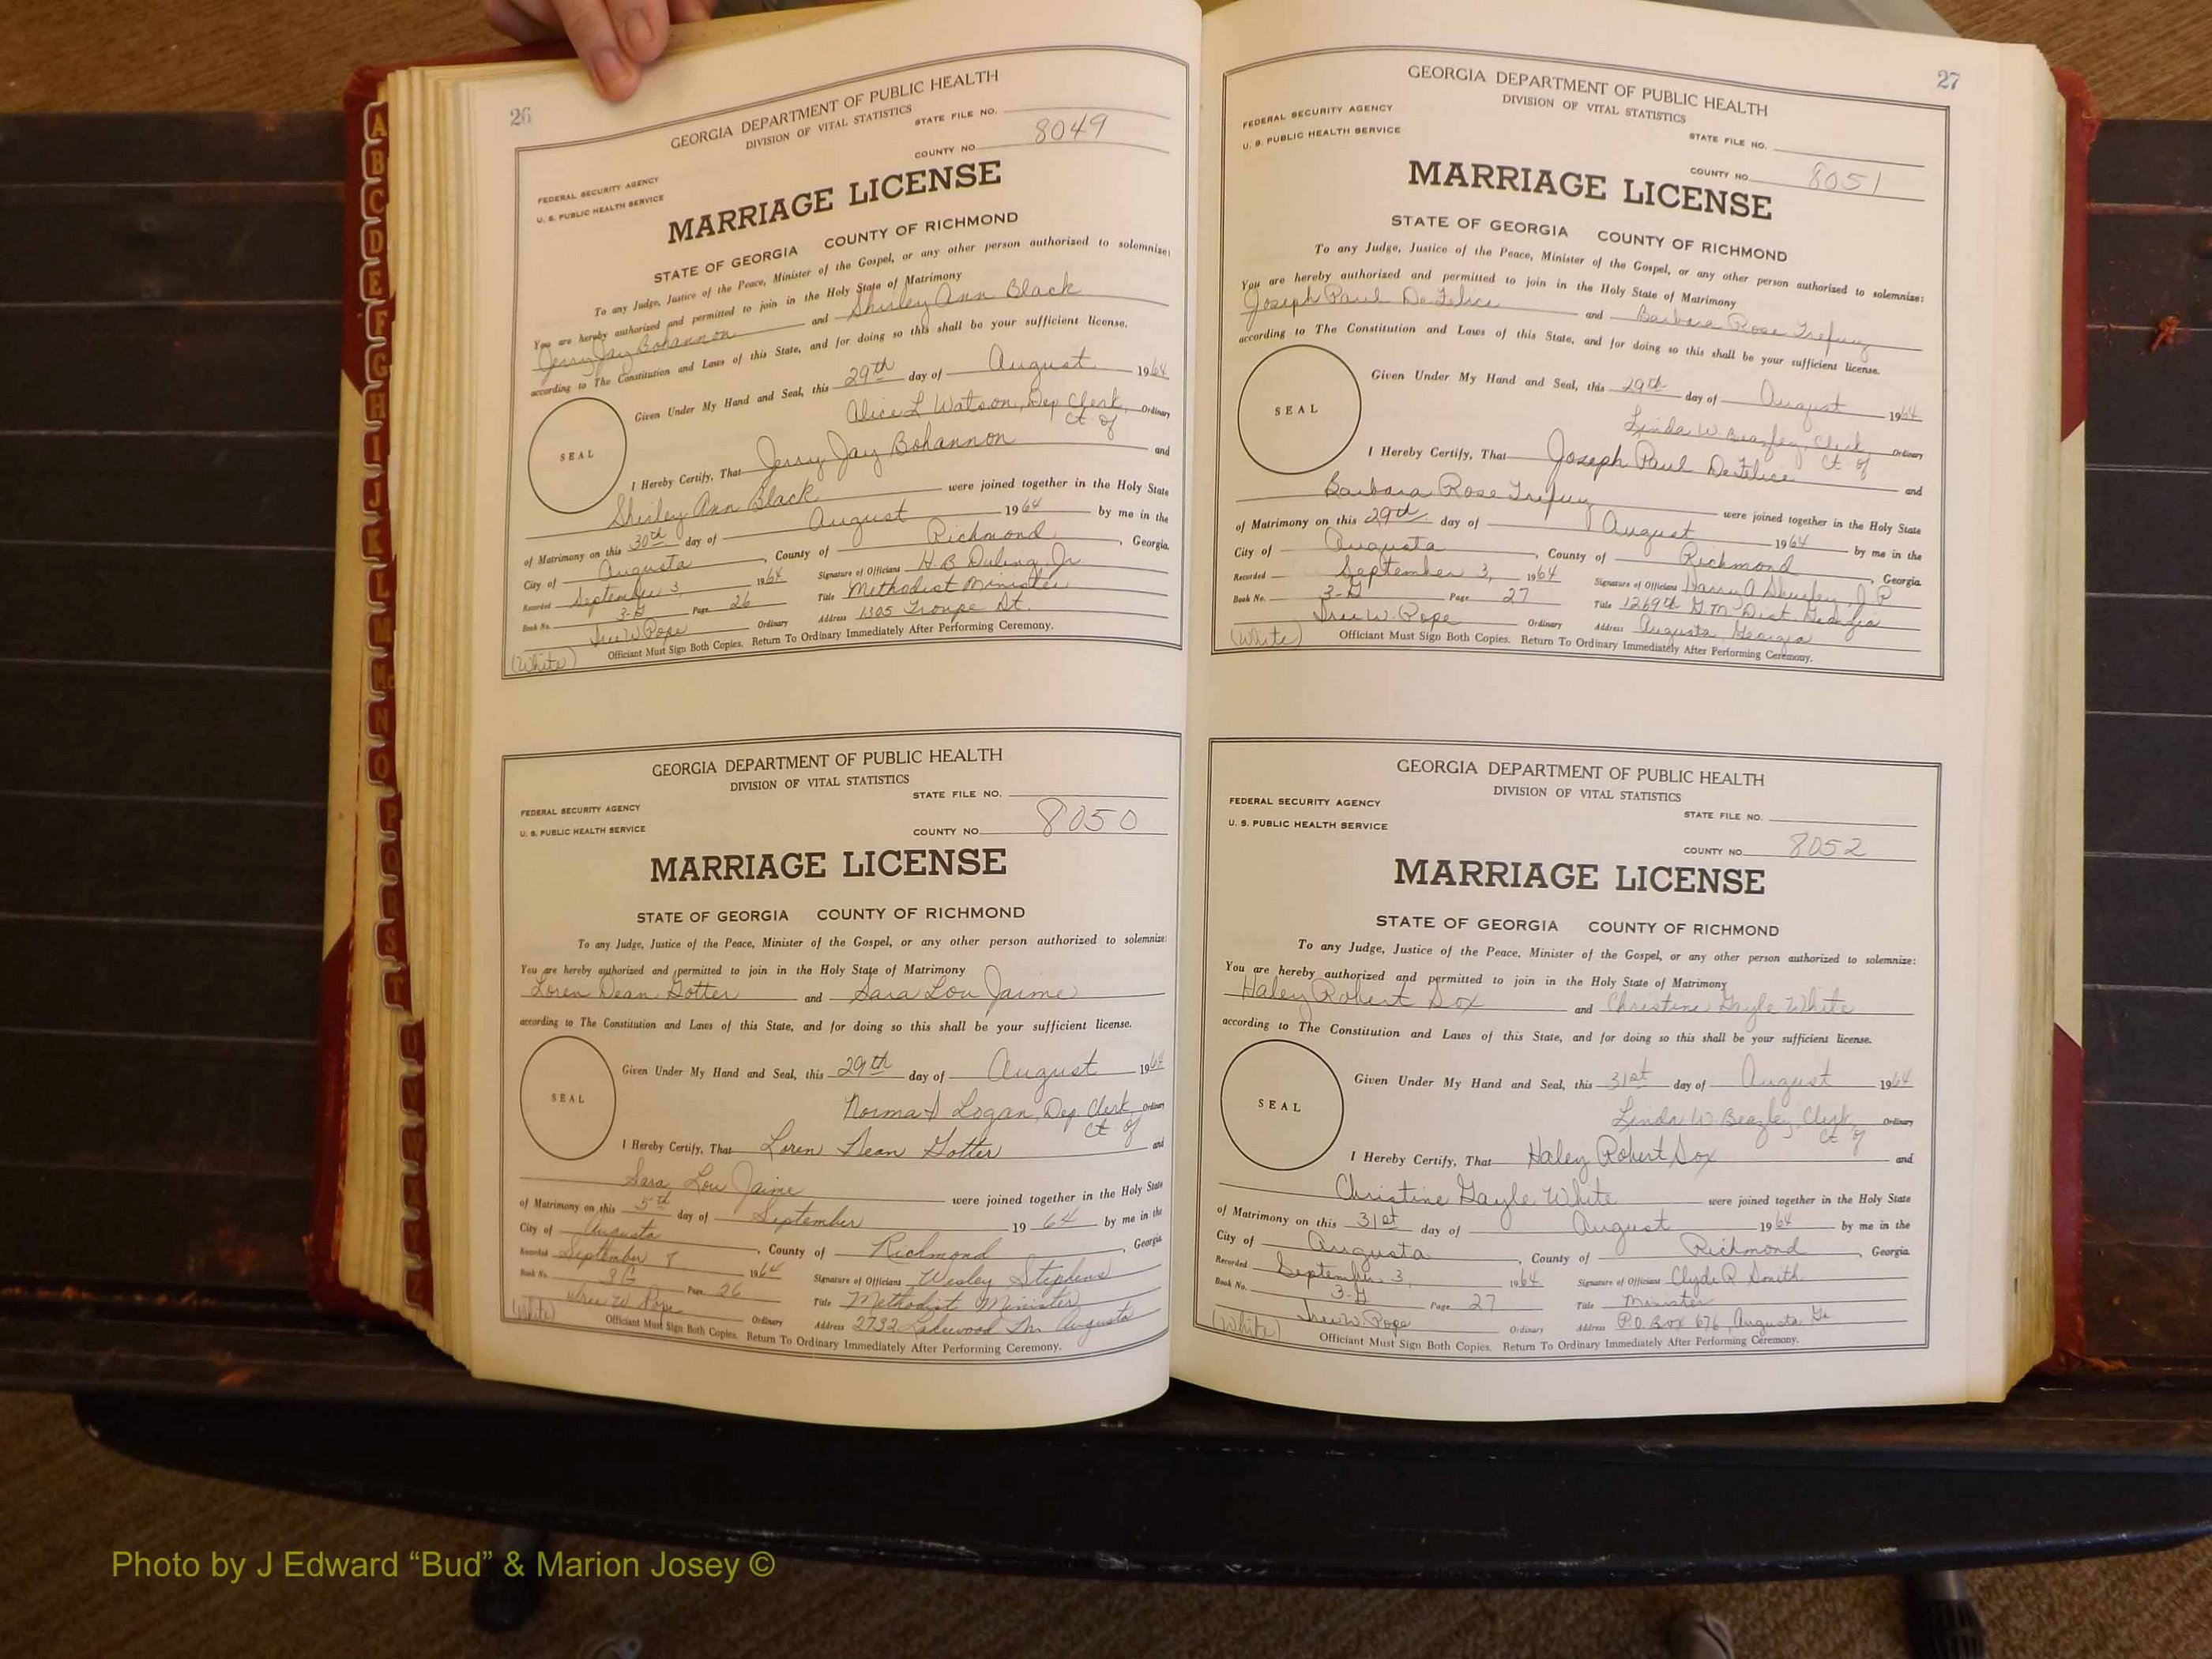 26
GEORGIA DEPARTMENT OF PUBLIC HEALTH
DIVISION OF VITAL STATISTICS
STATE FILE NO.
COUNTY NO. 8049
FEDERAL SECURITY AGENCY
U. S. PUBLIC HEALTH SERVICE
MARRIAGE LICENSE
STATE OF GEORGIA COUNTY OF RICHMOND
To any Judge, Justice of the Peace, Minister of the Gospel, or any other person authorized to solemnize:
You are hereby authorized and permitted to join in the Holy State of Matrimony
Jerry Jay Bohannon and Shirley Ann Black
according to The Constitution and Laws of this State, and for doing so this shall be your sufficient license.
Given Under My Hand and Seal, this 29th day of August 1964
Alice L Watson, Dep Clerk, Ordinary
Ct of
SEAL
I Hereby Certify, That Jerry Jay Bohannon and
Shirley Ann Black were joined together in the Holy State
of Matrimony on this 30th day of August 1964 by me in the
City of Augusta, County of Richmond, Georgia.
Recorded September 3, 1964 Signature of Officiant H. B. Duling, Jr
Book No. 3-G Page 26 Title Methodist Minister
W. Pope Ordinary Address 1305 Troupe St.
(White) Officiant Must Sign Both Copies. Return To Ordinary Immediately After Performing Ceremony.
GEORGIA DEPARTMENT OF PUBLIC HEALTH
DIVISION OF VITAL STATISTICS
STATE FILE NO.
FEDERAL SECURITY AGENCY
U. S. PUBLIC HEALTH SERVICE
COUNTY NO. 8050
MARRIAGE LICENSE
STATE OF GEORGIA COUNTY OF RICHMOND
To any Judge, Justice of the Peace, Minister of the Gospel, or any other person authorized to solemnize:
You are hereby authorized and permitted to join in the Holy State of Matrimony
Loren Dean Gotter and Sara Lou Jaime
according to The Constitution and Laws of this State, and for doing so this shall be your sufficient license.
Given Under My Hand and Seal, this 29th day of August 1964
Norma S Logan, Dep Clerk, Ordinary
Ct of
SEAL
I Hereby Certify, That Loren Dean Gotter and
Sara Lou Jaime were joined together in the Holy State
of Matrimony on this 5th day of September 1964 by me in the
City of Augusta, County of Richmond, Georgia.
Recorded September 8 1964 Signature of Officiant Wesley Stephens
Book No. 3G Page 26 Title Methodist Minister
W. Pope Ordinary Address 2732 Lakewood Dr. Augusta
(White) Officiant Must Sign Both Copies. Return To Ordinary Immediately After Performing Ceremony.
27
GEORGIA DEPARTMENT OF PUBLIC HEALTH
DIVISION OF VITAL STATISTICS
FEDERAL SECURITY AGENCY
U. S. PUBLIC HEALTH SERVICE
STATE FILE NO.
COUNTY NO. 8051
MARRIAGE LICENSE
STATE OF GEORGIA COUNTY OF RICHMOND
To any Judge, Justice of the Peace, Minister of the Gospel, or any other person authorized to solemnize:
You are hereby authorized and permitted to join in the Holy State of Matrimony
Joseph Paul DeFelice and Barbara Rose
according to The Constitution and Laws of this State, and for doing so this shall be your sufficient license.
Given Under My Hand and Seal, this 29th day of August 1964
Linda W Beazley, Clerk, Ordinary
Ct of
SEAL
I Hereby Certify, That Joseph Paul DeFelice and
Barbara Rose were joined together in the Holy State
of Matrimony on this 29th day of August 1964 by me in the
City of Augusta, County of Richmond, Georgia.
Recorded September 3, 1964 Signature of Officiant J P
Book No. 3-G Page 27 Title 1269th G.M. Dist. Georgia
W. Pope Ordinary Address Augusta, Georgia
(White) Officiant Must Sign Both Copies. Return To Ordinary Immediately After Performing Ceremony.
GEORGIA DEPARTMENT OF PUBLIC HEALTH
DIVISION OF VITAL STATISTICS
FEDERAL SECURITY AGENCY
U. S. PUBLIC HEALTH SERVICE
STATE FILE NO.
COUNTY NO. 8052
MARRIAGE LICENSE
STATE OF GEORGIA COUNTY OF RICHMOND
To any Judge, Justice of the Peace, Minister of the Gospel, or any other person authorized to solemnize:
You are hereby authorized and permitted to join in the Holy State of Matrimony
Haley Robert Sox and Christine Gayle White
according to The Constitution and Laws of this State, and for doing so this shall be your sufficient license.
Given Under My Hand and Seal, this 31st day of August 1964
Linda W. Beazley, Clerk, Ordinary
Ct of
SEAL
I Hereby Certify, That Haley Robert Sox and
Christine Gayle White were joined together in the Holy State
of Matrimony on this 31st day of August 1964 by me in the
City of Augusta, County of Richmond, Georgia.
Recorded September 3, 1964 Signature of Officiant Clyde R. Smith
Book No. 3-G Page 27 Title Minister
W. Pope Ordinary Address P.O. Box 676, Augusta, Ga
(White) Officiant Must Sign Both Copies. Return To Ordinary Immediately After Performing Ceremony.
A
B
C
D
E
F
G
H
I
J
K
L
M
Mc
N
O
P
Q
R
S
T
U
V
W
Photo by J Edward “Bud” & Marion Josey ©